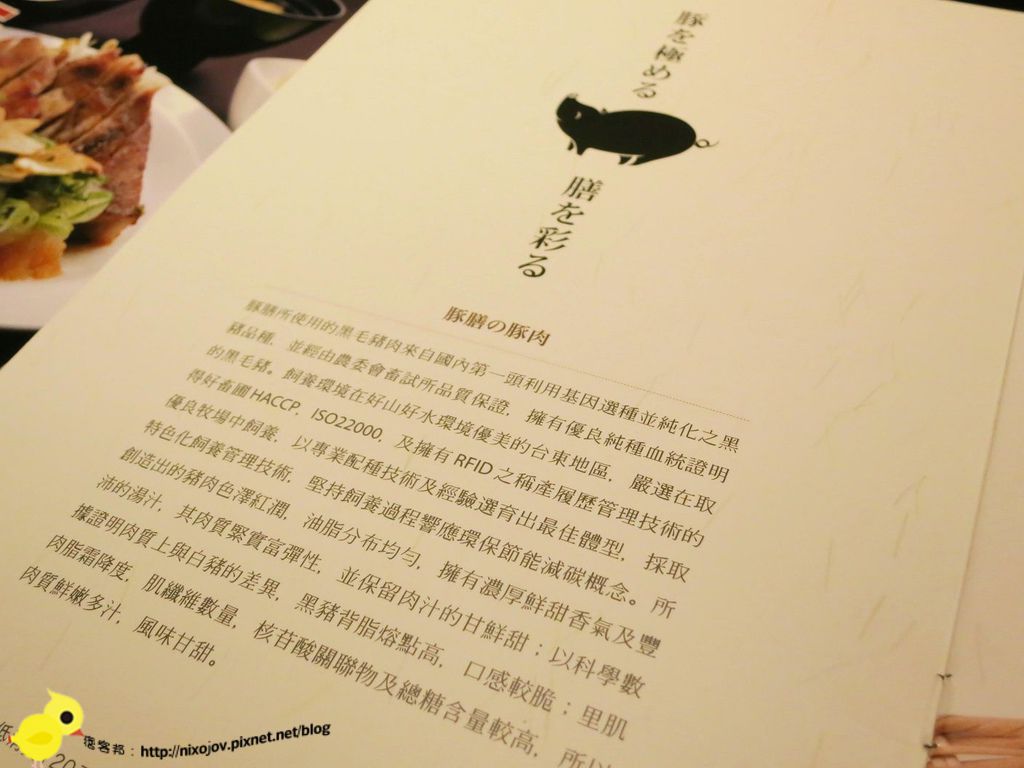 豚を極める
膳を彩る
豚膳の豚肉
豚膳所使用的黑毛豬肉來自國內第一頭利用基因選種並純化之黑
豬品種，並經由農委會畜試所品質保證，擁有優良純種血統證明
的黑毛豬。飼養環境在好山好水環境優美的台東地區，嚴選在取
得好畜圃HACCP，ISO22000，及擁有RFID之稱產履歷管理技術的
優良牧場中飼養，以專業配種技術及經驗選育出最佳體型，採取
特色化飼養管理技術，堅持飼養過程響應環保節能減碳概念。所
創造出的豬肉色澤紅潤，油脂分布均勻，擁有濃厚鮮甜香氣及豐
沛的湯汁，其肉質緊實富彈性，並保留肉汁的甘鮮甜；以科學數
據證明肉質上與白豬的差異，黑豬背脂熔點高，口感較脆；里肌
肉脂霜降度，肌纖維數量，核苷酸關聯物及總糖含量較高，所以
肉質鮮嫩多汁，風味甘甜。
痞客邦：http://nixojov.pixnet.net/blog